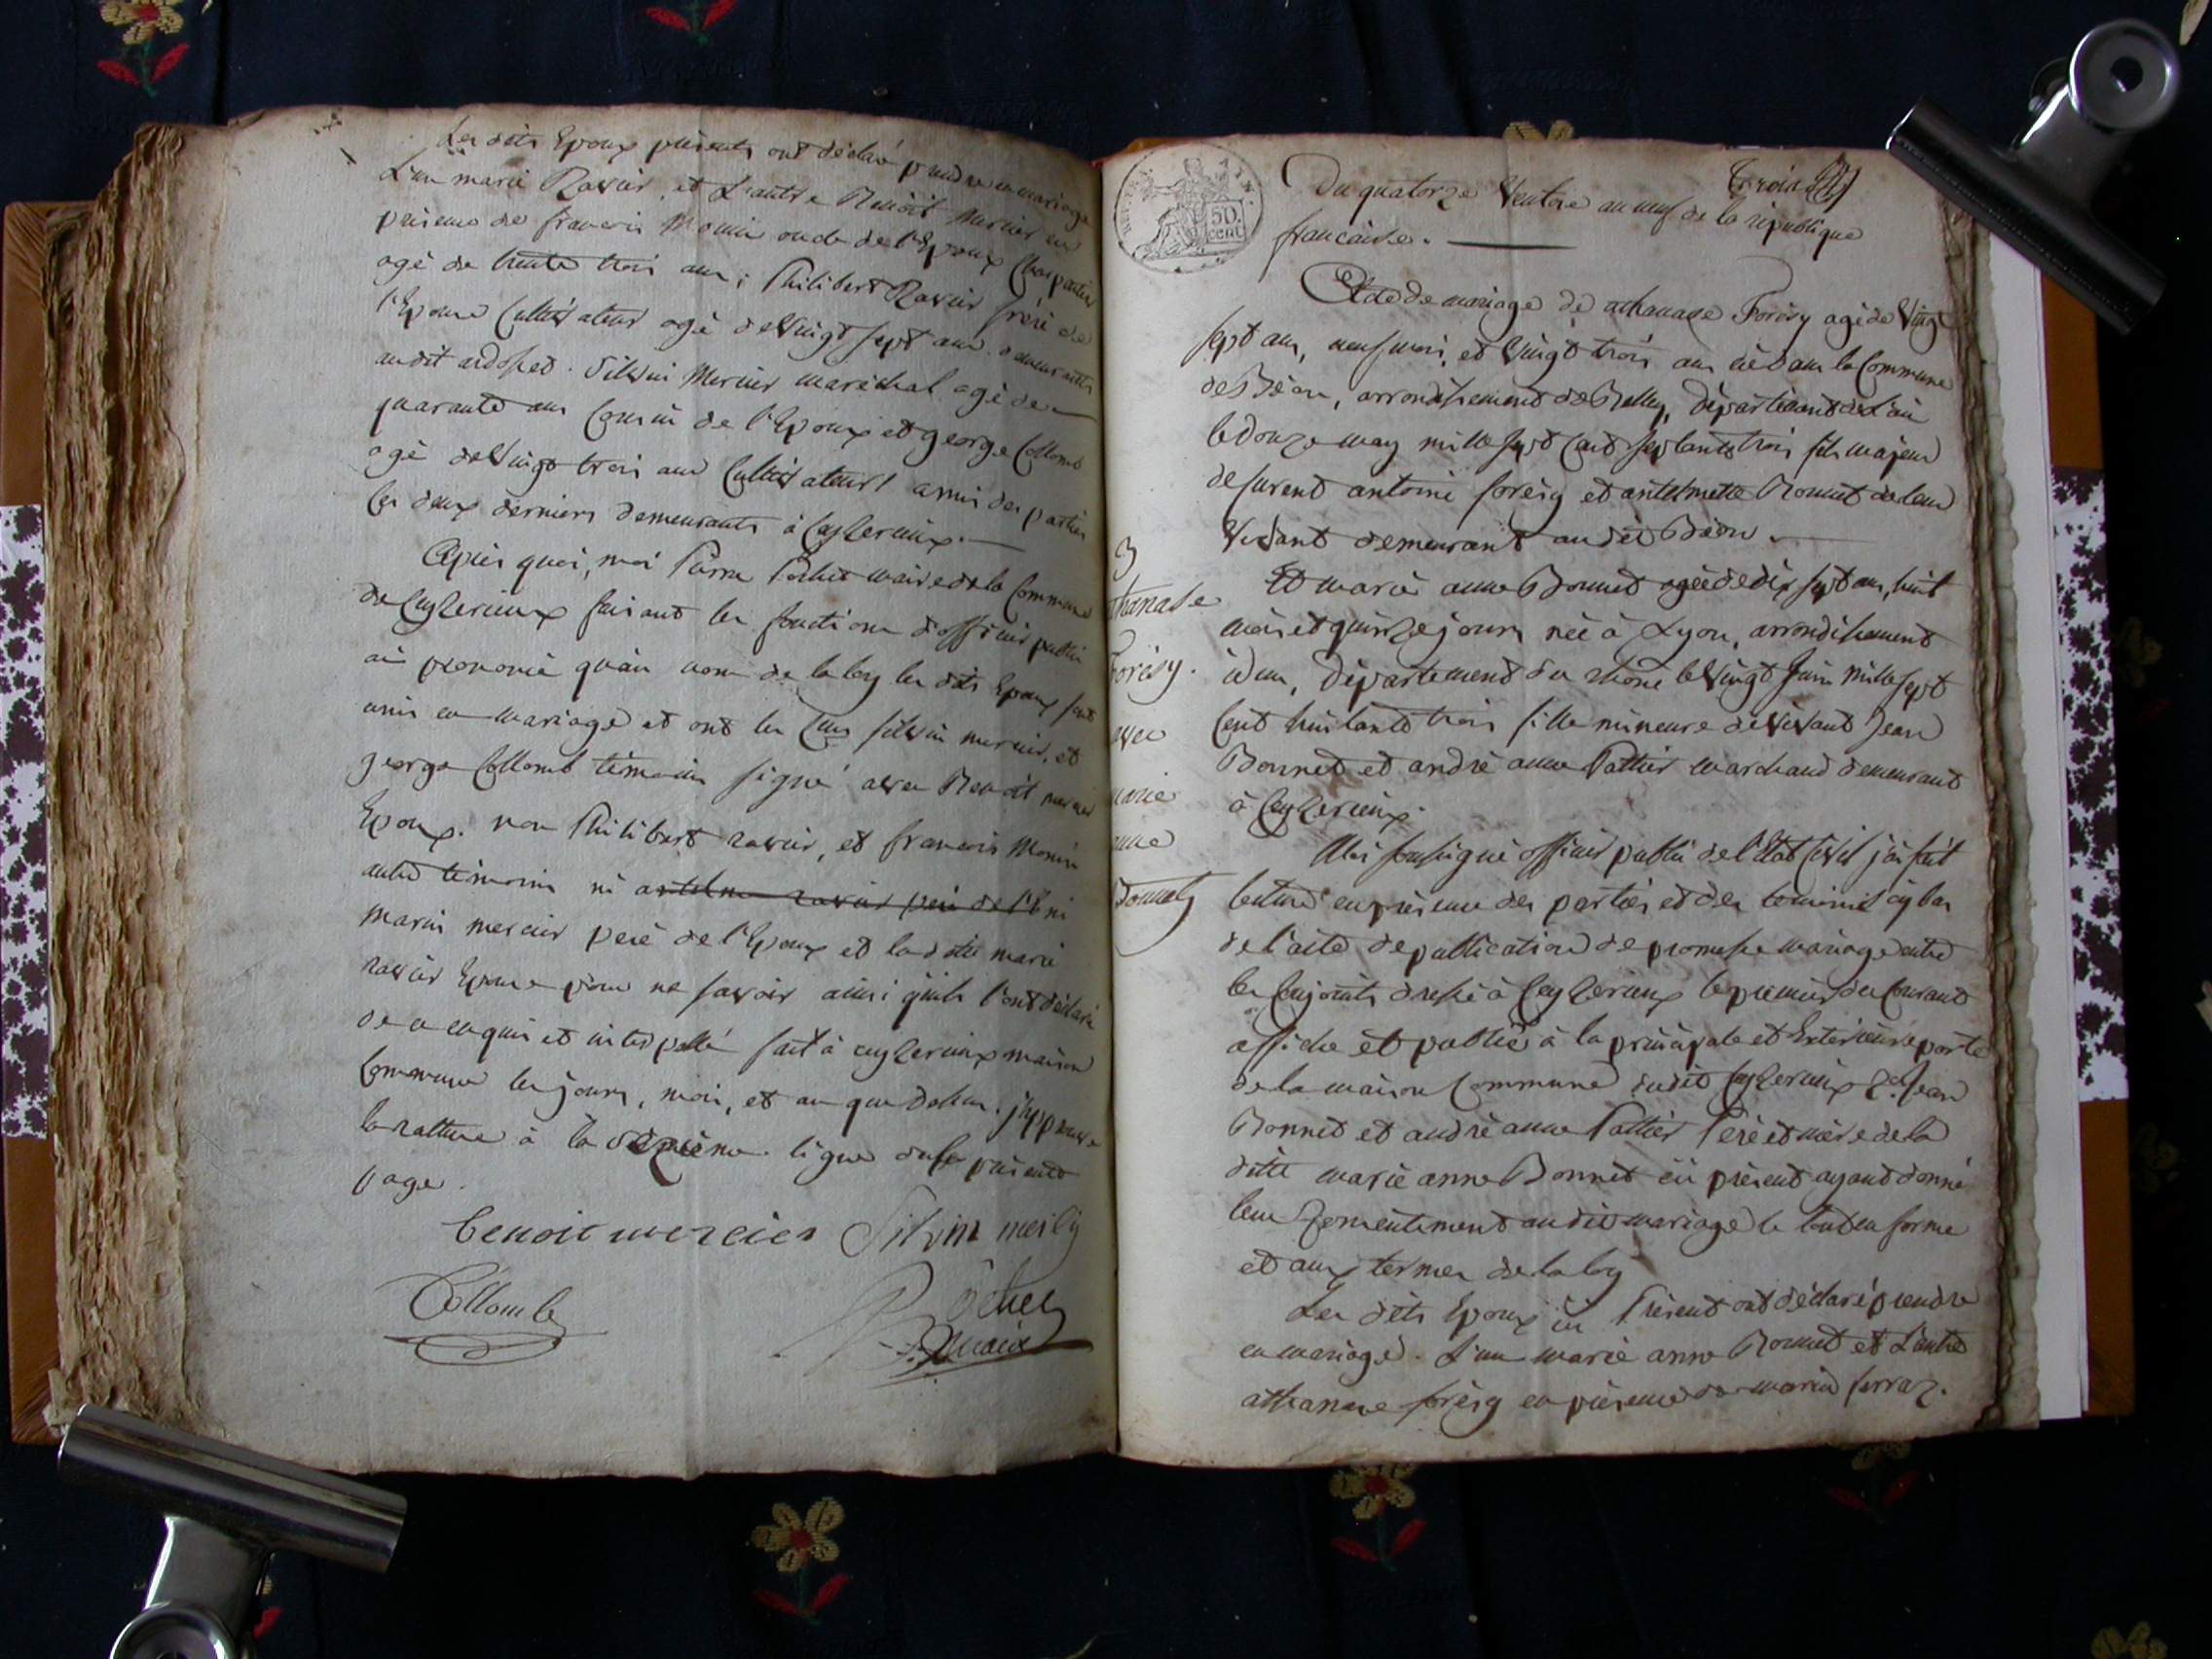 Les dits Epoux présents ont déclaré prendre en mariage
L'un marie Ravier, et L'autre Benoit Mercier en
présence de francois Monin oncle de l'Epoux Charpentier
agé de trente trois ans; Philibert Ravier frere de
l'Epouse Cultivateur agé de Vingt sept ans demeurants
audit ardosset. Silvin Mercier maréchal agé de
quarante ans Cousin de l'Epoux et george Collomb
agé de Vingt trois ans Cultivateurs amis des parties
les deux derniers demeurants à Ceyzerieux.
Après quoi, moi Pierre Rochet maire de la Commune
de Ceyzerieux faisant les fonctions d'officier public
ai prononcé qu'au nom de la loy les dits Epoux sont
unis en mariage et ont les Cens silvin mercier, et
george Collomb témoins signé avec Benoit mercier
Epoux. non Philibert ravier, et francois Monin
autre témoins ni antelme ravier pere de l'E ni
marin mercier peré de l'Epoux et la dite marie
ravier Epouse pour ne savoir ainsi qu'ils l'ont déclaré
de ce enquis et interpellé fait à ceyzerieux maison
Commune les jours, mois, et an que dessus. j'approuve
la rature à la ligne de la présente
page.
benoit mercier Silvin
Collomb
Rochet
maire
50. cent
Trois
Du quatorze Ventose an neuf de la république
francaise.
Acte de mariage de athanase Forésy agé de Vingt
sept ans, neuf mois, et Vingt trois ans né dans la Commune
de Béon, arrondissement de Belley, département de L'ain
le douze may mille sept Cent septante trois fils majeur
de furent antoine forésy et antelmette Bonnet de leur
Vivant demeurant au dit Béon.
Et marie anne Bonnet agée de dix sept ans, huit
mois et quinze jours née à Lyon, arrondissement
idem, Département du rhone le Vingt Juin mille sept
Cent huitante trois fille mineure de vivant Jean
Bonnet et andré anne Pattier marchand demeurant
à Ceyzerieux.
Moi soussigné officier public de l'Etat Civil j'ai fait
lecture en présence des parties et des temoins cy bas
de l'acte de publication de promesse mariage entre
les Conjoints dressé à Ceyzerieux le premier du Courant
affiché et publié à la principale et Extérieure porte
de la maison Commune dudit Ceyzerieux Jean
Bonnet et andré anne Pattier Peré et mère de la
dite marie anne Bonnet ici présent ayant donné
leur Consentement au dit mariage le tout en forme
et aux termes de la loy
Les dits Epoux ici Présent ont déclaré prendre
en mariage. L'un marie anne Bonnet et L'autre
athanase forésy en présence de marin ferraz.
3
thanase
Forésy.
avec
marie
anne
Bonnet